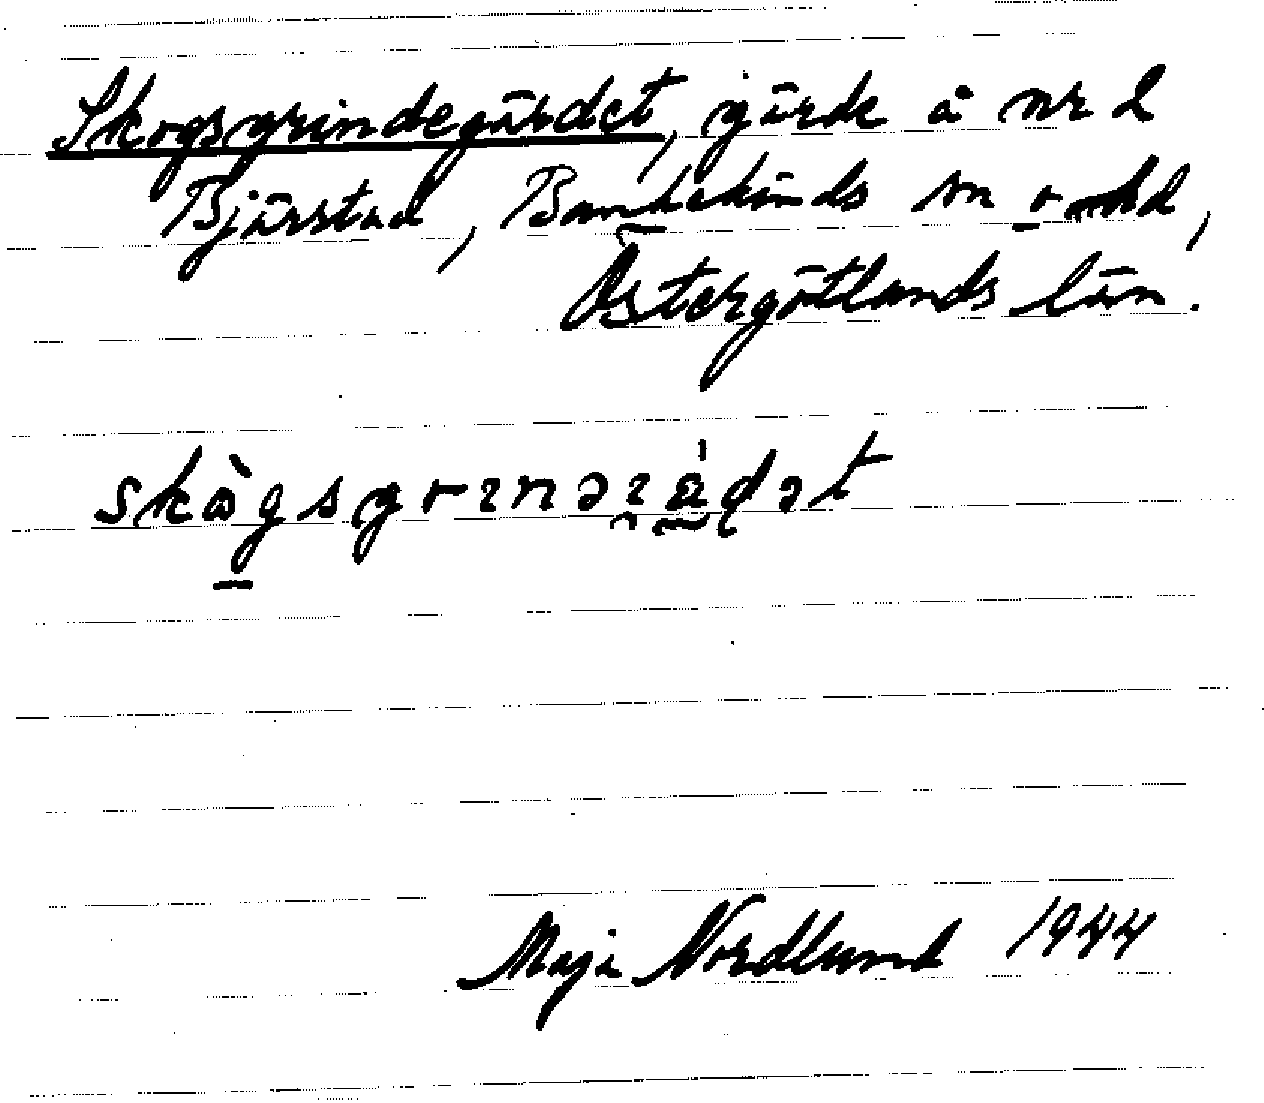 Skogsgrindegärdet, gärde å nr 2
Bjärstad, Bankekinds sn o hd,
Östergötlands län.
skògsgrınəɿádət
Maja Nordlund 1944